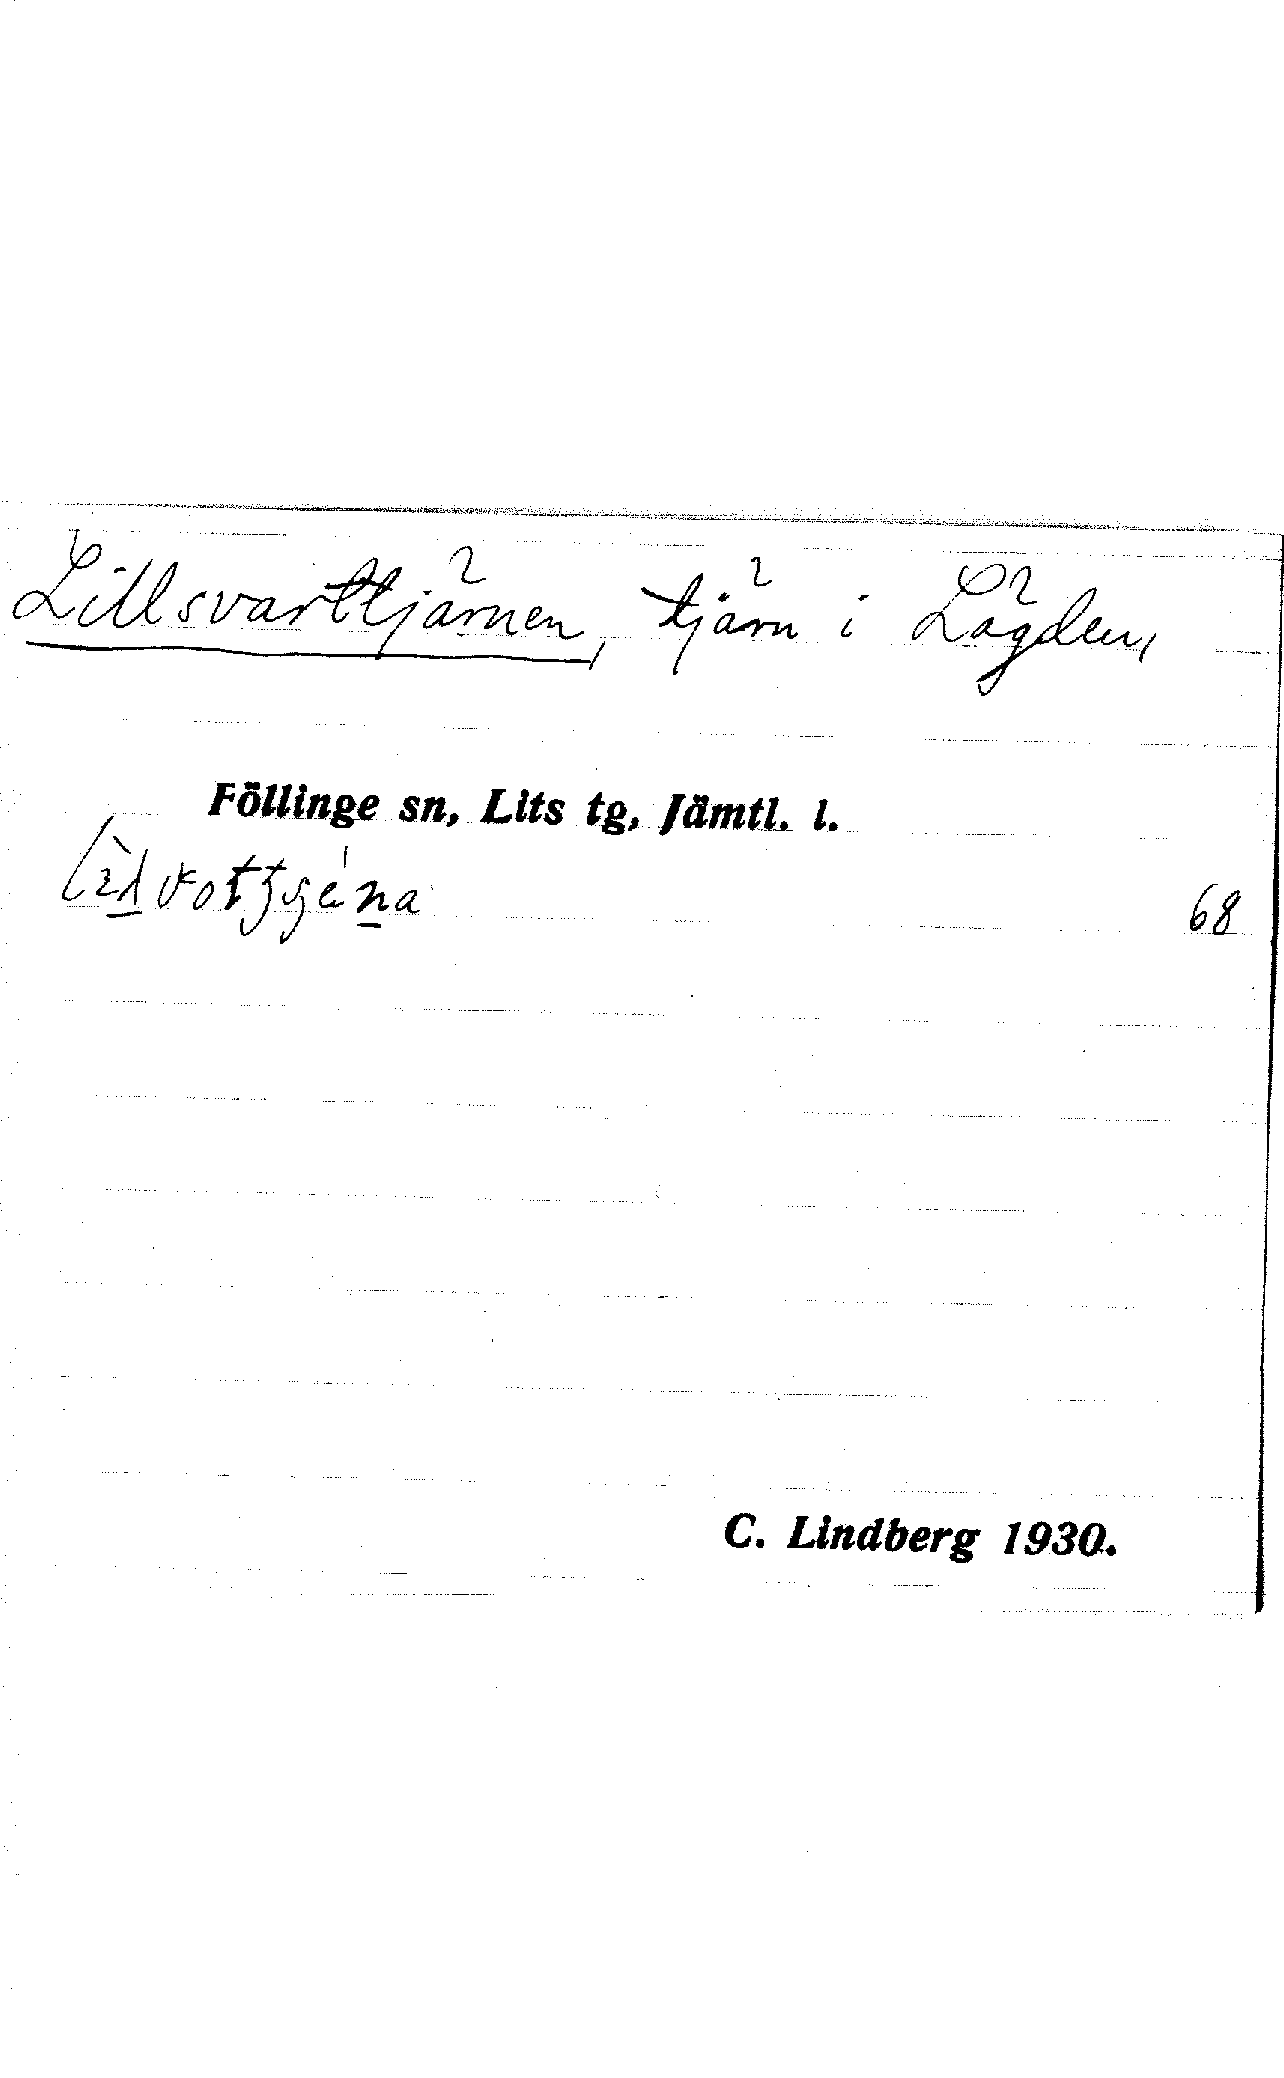 Lillsvarttjärnen, tjärn i Lögden,
Föllinge sn, Lits tg, Jämtl. l.
68
C. Lindberg 1930.